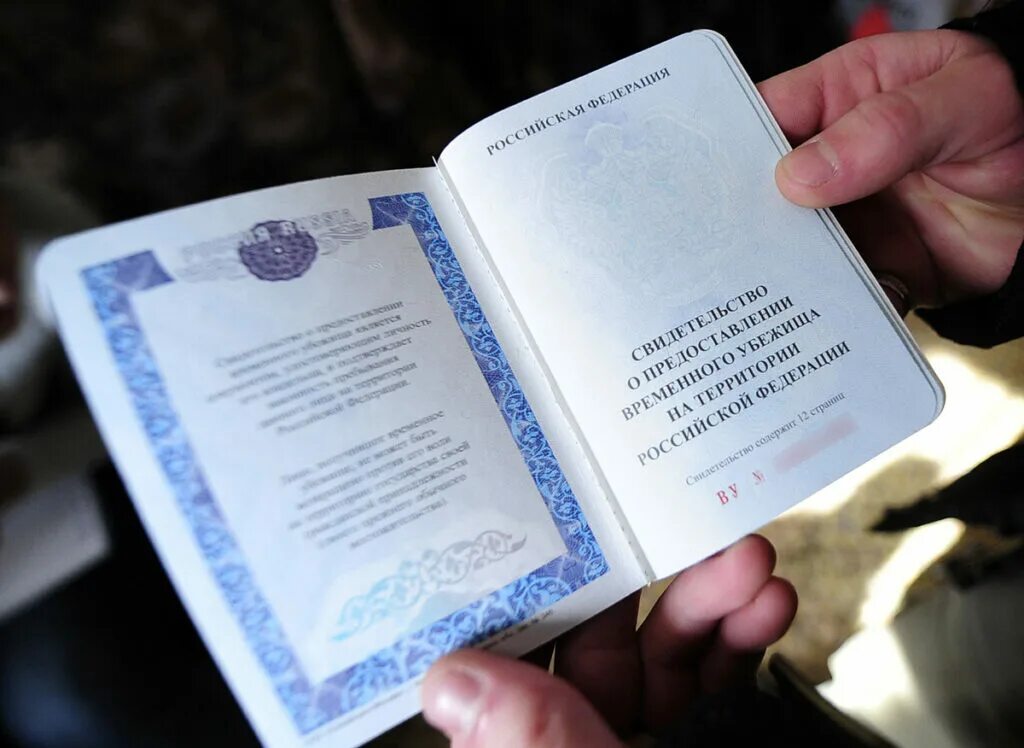 RUSSIA
Свидетельство о предоставлении
временного убежища является
документом, удостоверяющим личность
его владельца, и подтверждает
законность пребывания
данного лица на территории
Российской Федерации.
Лицо, получившее временное
убежище, не может быть
возвращено против его воли
на территорию государства своей
гражданской принадлежности
(своего прежнего обычного
местожительства).
РОССИЙСКАЯ ФЕДЕРАЦИЯ
СВИДЕТЕЛЬСТВО
О ПРЕДОСТАВЛЕНИИ
ВРЕМЕННОГО УБЕЖИЩА
НА ТЕРРИТОРИИ
РОССИЙСКОЙ ФЕДЕРАЦИИ
Свидетельство содержит 12 страниц
ВУ №